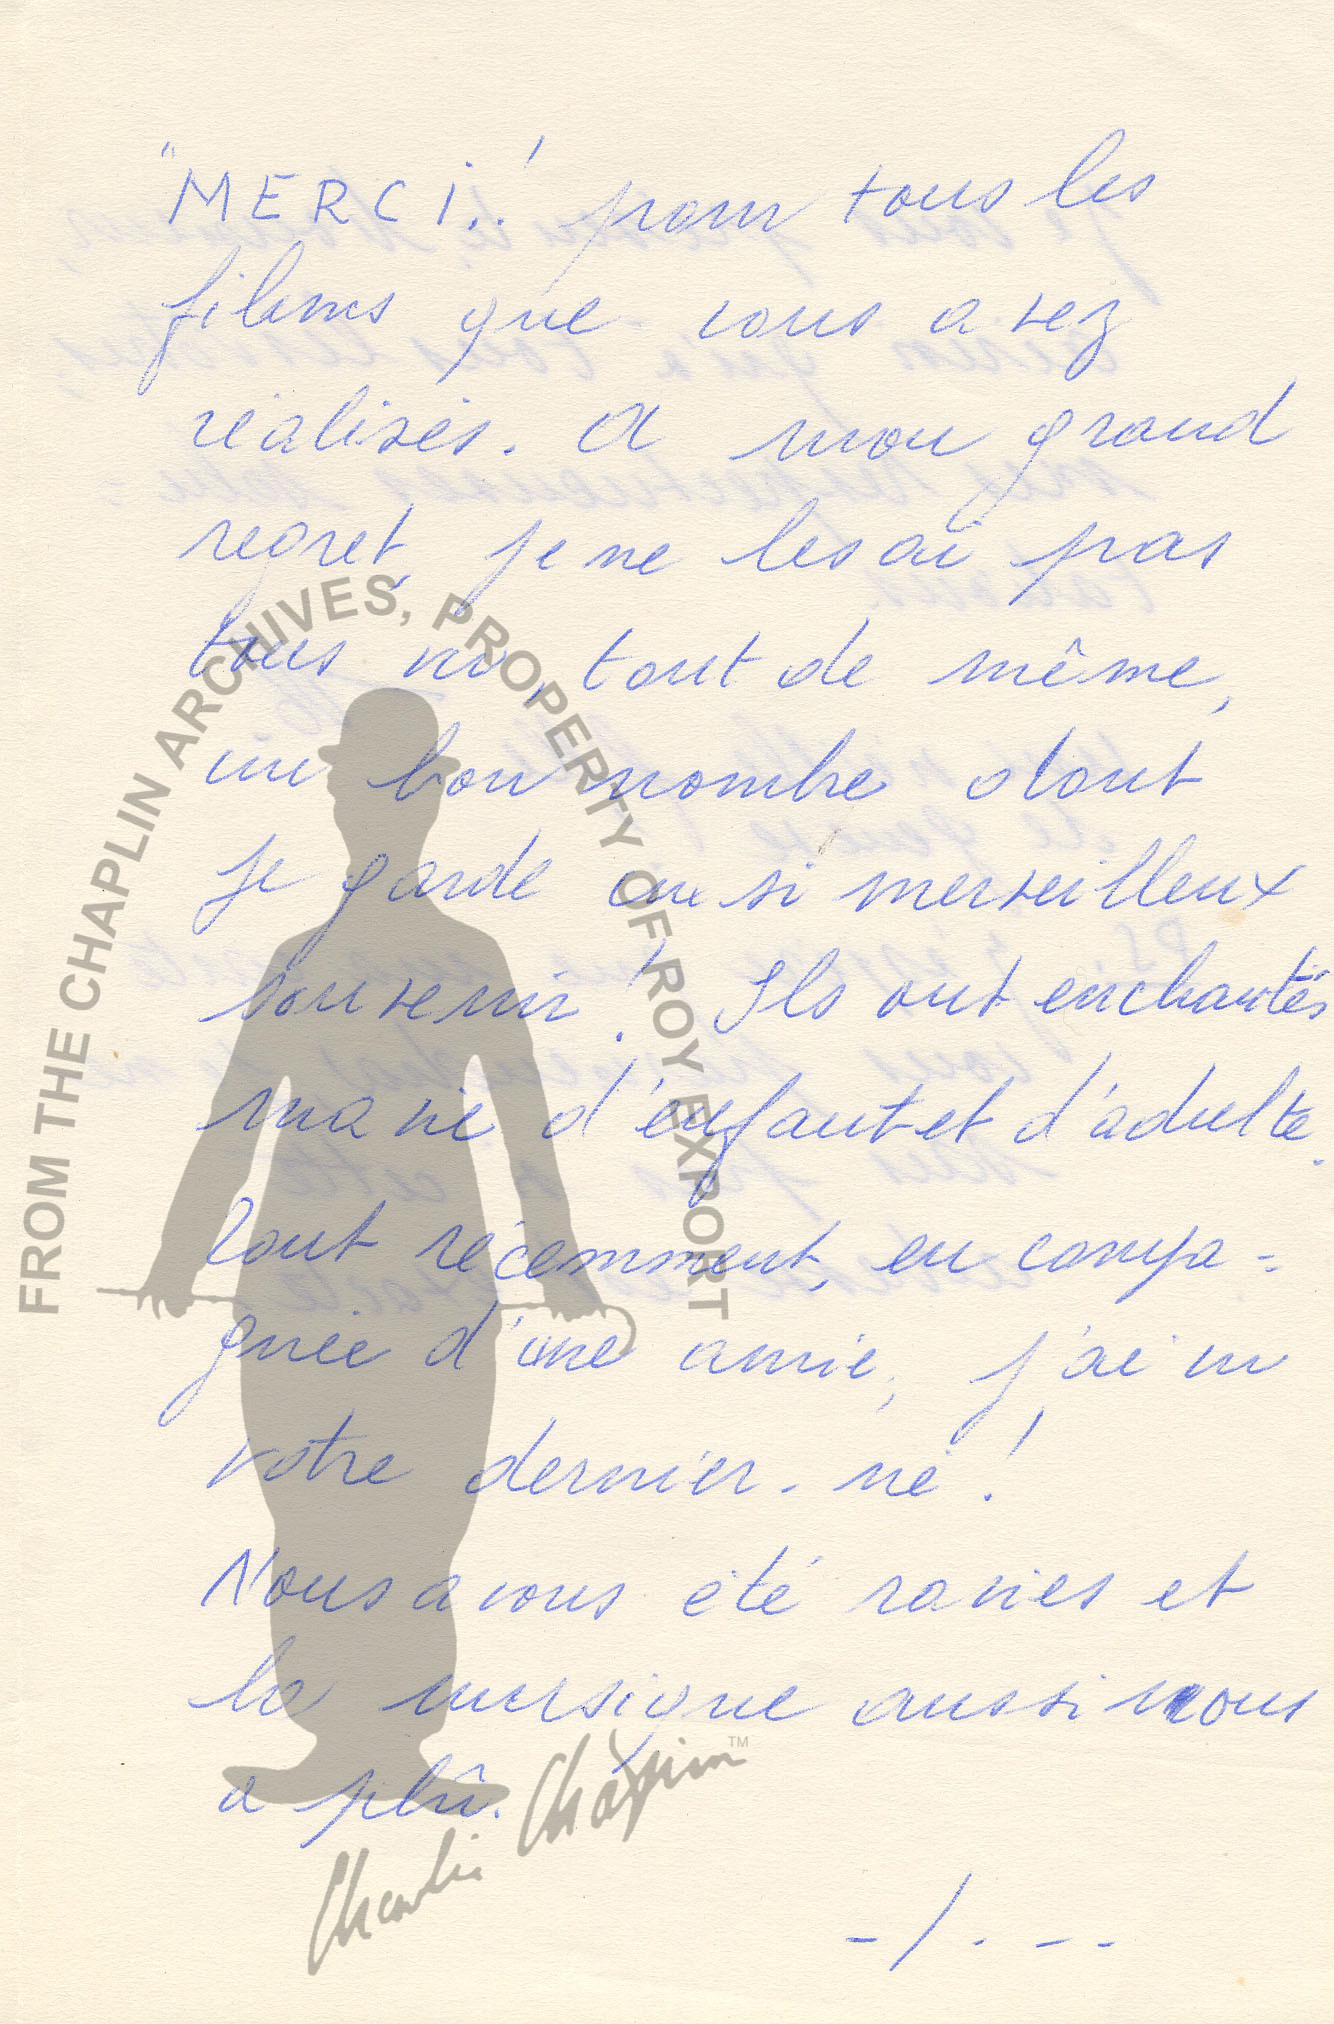 "MERCI..! pour tous les
films que vous avez
réalisés. A mon grand
regret, je ne les ai pas
tous vu, tout de même,
un bon nombre dont
je garde un si merveilleux
souvenir! Ils ont enchantés
ma vie d'enfant et d'adulte.
Tout récemment, en compa-
gnie d'une amie, j'ai vu
votre dernier-né!
Nous avons été ravies et
la musique aussi nous
a plû.
-/.--
FROM THE CHAPLIN ARCHIVES, PROPERTY OF ROY EXPORT
Charlie Chaplin TM